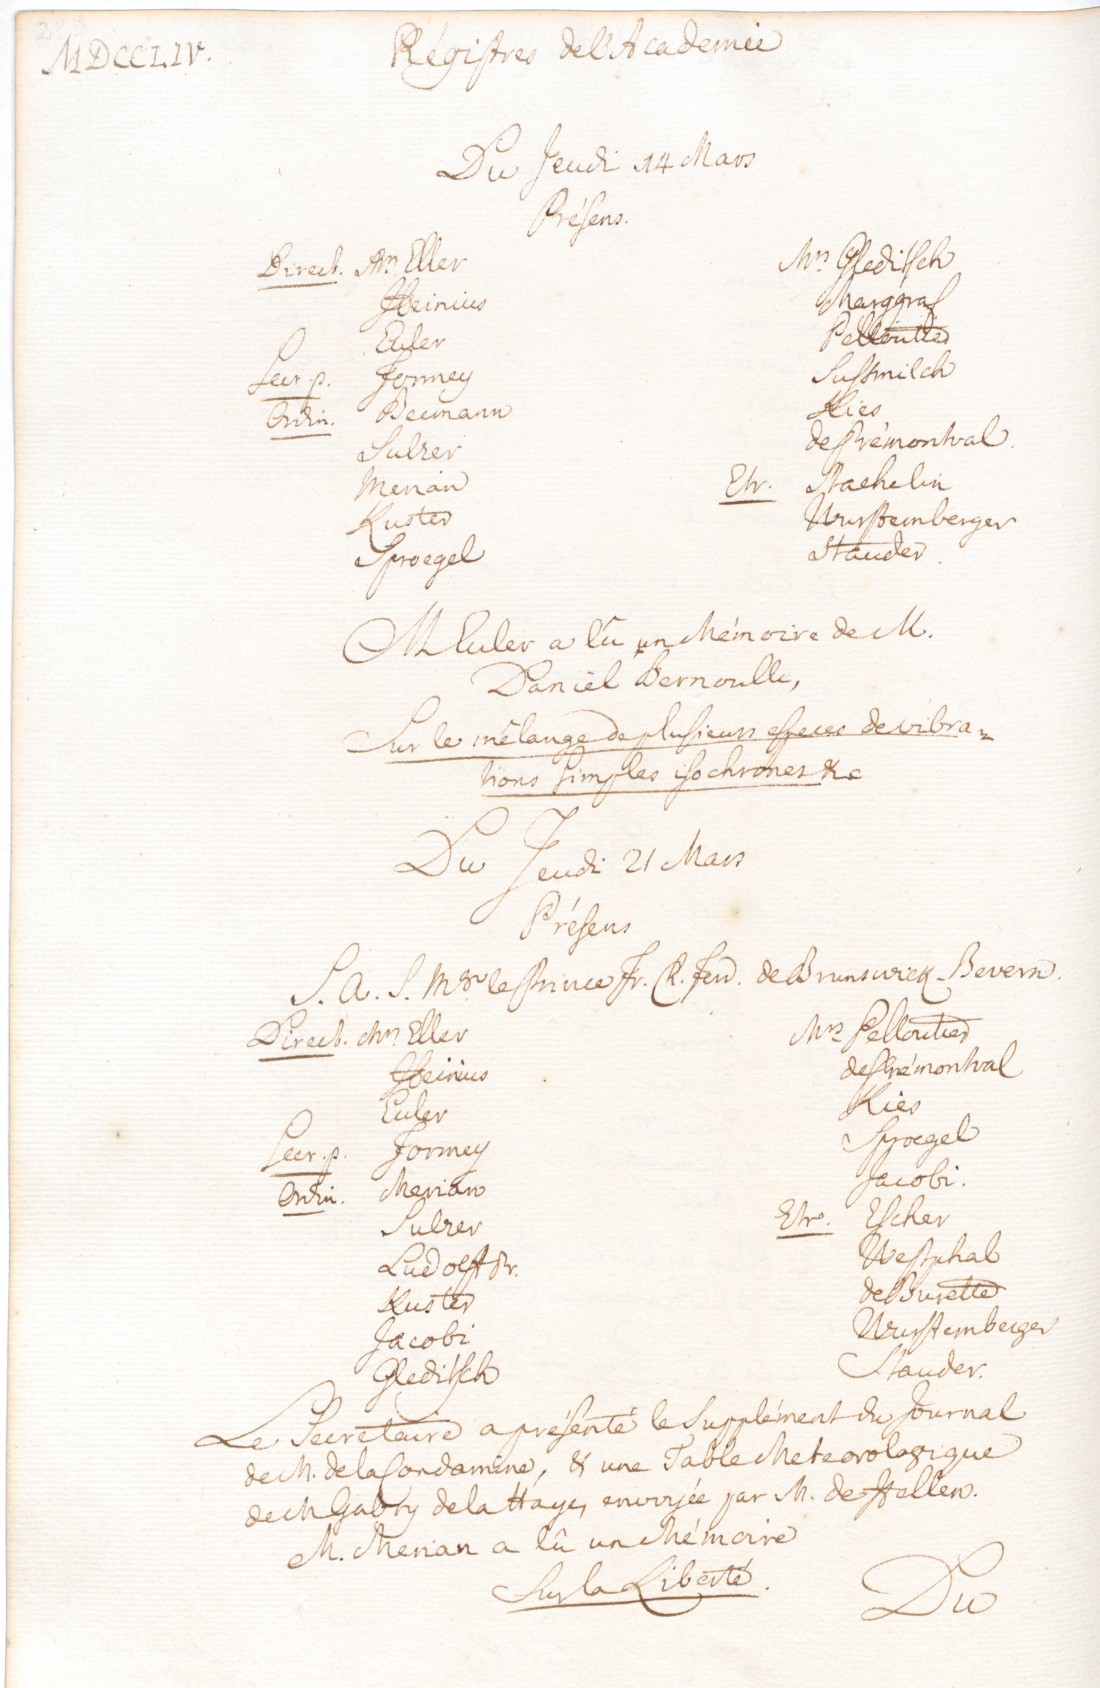 MDCCLIV.
Régistres de l'Academie
Du Jeudi 14 Mars
Présens.
Direct. Mrs Eller
Heinius
Euler
Secr. p. Formey
Ordin. Becmann
Sulzer
Merian
Kuster
Sproegel
Mrs Gleditsch
Marggraf
Pelloutier
Sussmilch
Kies
de Prémontval.
Etr. Staehelin
Wurstemberger
Stauder.
M. Euler a lû un Mémoire de M.
Daniel Bernoulli,
Sur le mêlange de plusieurs especes de vibra=
tions simples isochrones &c
Du Jeudi 21 Mars
Présens
S. A. S. Mgr le Prince Fr. R. Ferd. de Brunswick-Bevern.
Direct. Mrs Eller
Heinius
Euler
Secr. p. Formey
Ordin. Merian
Sulzer
Ludolff Pr.
Kuster
Jacobi
Gleditsch
Mrs Pelloutier
de Prémontval
Kies
Sproegel
Jacobi.
Etr. Escher
Westphal
de Burette
Wurstemberger
Stauder.
Le Secretaire a présenté le Supplément du Journal
de M. de la Condamine, & une Table Meteorologique
de M. Gabry de la Haye, envoyée par M. de Hellen.
M. Merian a lû un Mémoire
Sur la Liberté.
Du